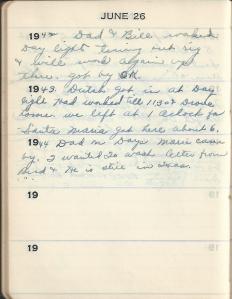 JUNE 26
1942 Dad & Bill worked
Day light turning out rig
& will work again up
there. got by OK
1943. Dutch got in at Day
light Had worked till 11:30 & Drove
home. we left at 1 oclock for
Santa Maria got here about 6.
1944 Dad on Days Marie came
by. I wanted to wash letter from
Bud & He is still in Texas.
19
19